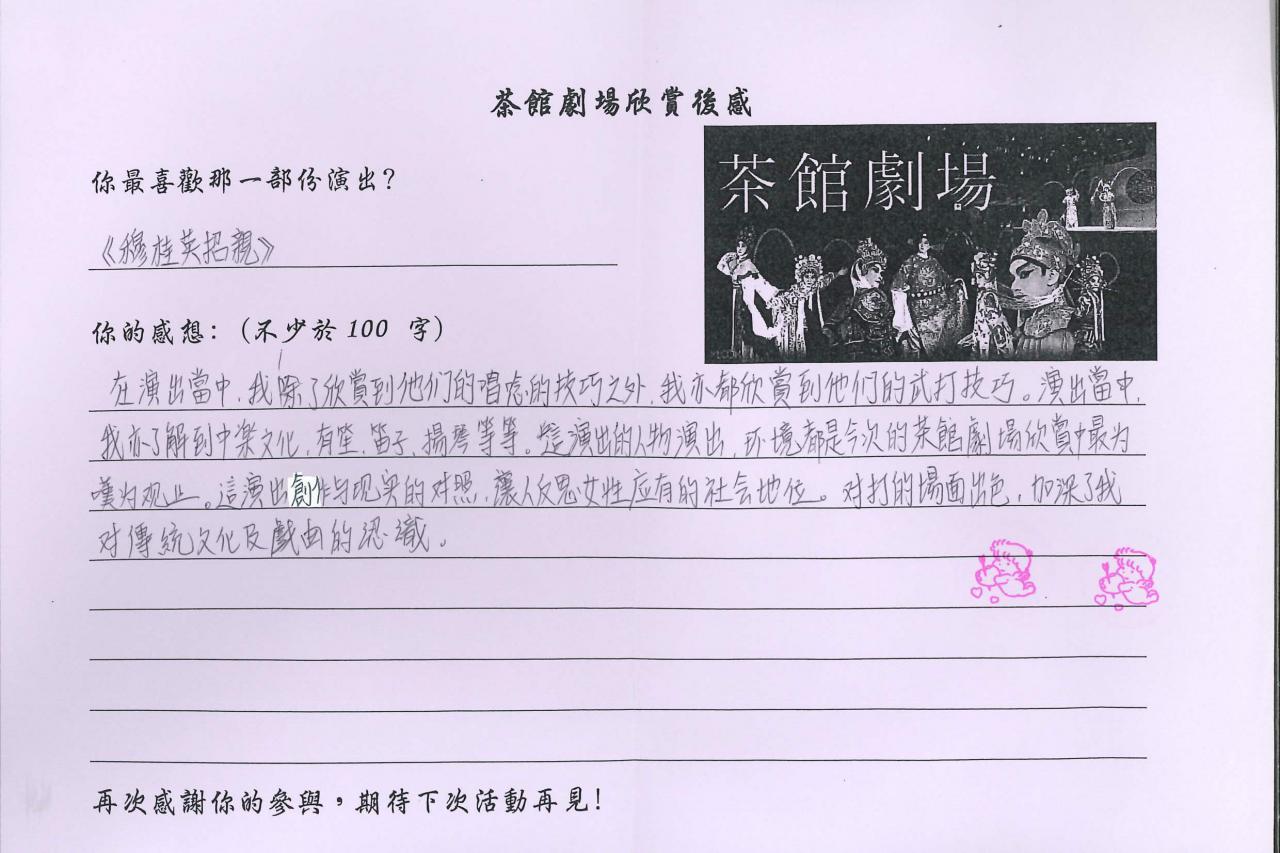 茶館劇場欣賞後感
茶館劇場
你最喜歡那一部份演出?
《穆桂英招親》
你的感想:(不少於 100 字)
在演出當中,我除了欣賞到他们的唱唸的技巧之外,我亦都欣賞到他们的武打技巧。演出當中,
我亦了解到中楽文化,有笙,笛子,揚琴等等。這演出的人物演出,环境都是今次的茶館劇場欣賞中最为
嘆为观止。這演出創作与现实的对照,讓人反思女性应有的社会地位。对打的場面出色,加深了我
对傳統文化及戲曲的認識。
再次感謝你的參與,期待下次活動再見!